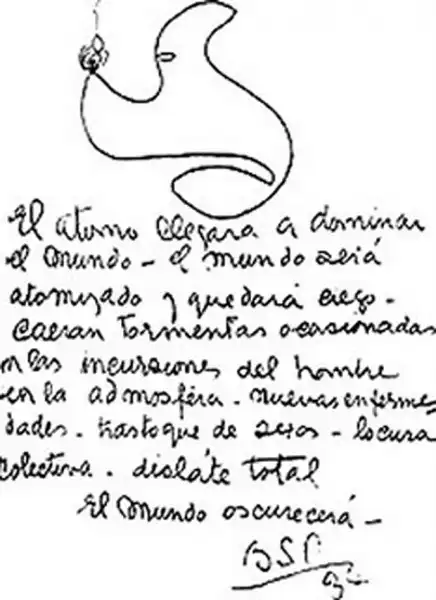 El átomo llegará a dominar
el mundo - el mundo será
atomizado y quedará ciego -
Caeran tormentas ocasionadas
por las incursiones del hombre
en la admosféra. nuevas enferme
dades. trastoque de sexos - locura
colectiva. disláte total
El mundo oscurecerá -
BSP